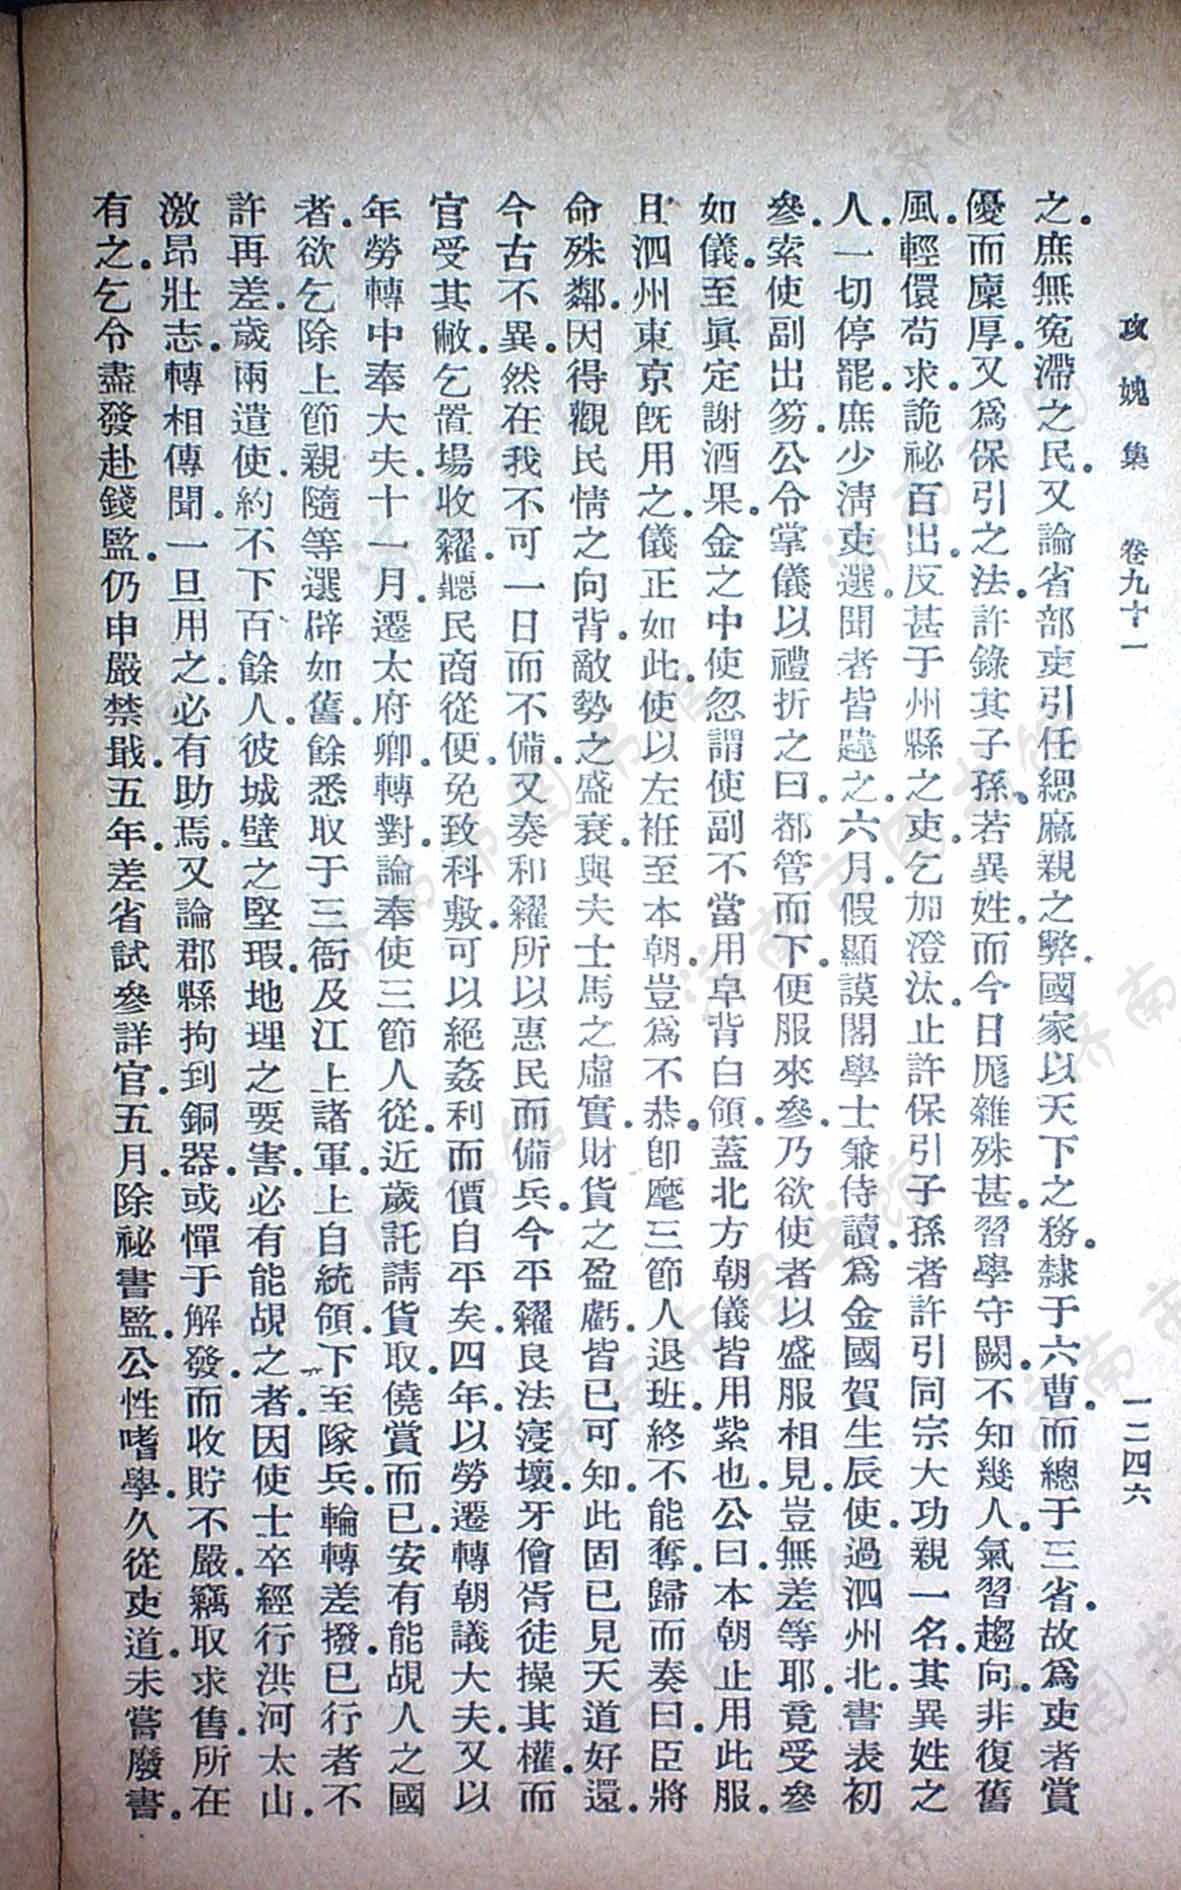 攻媿集　卷九十一　一二四六
之。庶無寃滯之民。又論省部吏引任緦麻親之弊。國家以天下之務。隸于六曹。而總于三省。故爲吏者賞
優而廩厚。又爲保引之法。許錄其子孫。若異姓。而今日厖雜殊甚。習學守闕。不知幾人。氣習趨向。非復舊
風。輕儇苟求。詭祕百出。反甚于州縣之吏。乞加澄汰。止許保引子孫者許引同宗大功親一名。其異姓之
人。一切停罷。庶少淸吏選。聞者皆韙之。六月。假顯謨閣學士兼侍讀。爲金國賀生辰使。過泗州北。書表初
參。索使副出笏。公令掌儀以禮折之曰。都管而下。便服來參。乃欲使者以盛服相見。豈無差等耶。竟受參
如儀。至眞定謝酒果。金之中使忽謂使副不當用皁背白領。蓋北方朝儀皆用紫也。公曰。本朝止用此服。
且泗州東京旣用之。儀正如此。使以左袵至本朝。豈爲不恭。卽麾三節人退班。終不能奪。歸而奏曰。臣將
命殊鄰。因得觀民情之向背。敵勢之盛衰。與夫士馬之虛實。財貨之盈虧。皆已可知。此固已見天道好還。
今古不異。然在我不可一日而不備。又奏和糴所以惠民而備兵。今平糴良法寖壞。牙儈胥徒操其權。而
官受其敝。乞置場收糴。聽民商從便。免致科敷。可以絕姦利而價自平矣。四年。以勞遷轉朝議大夫。又以
年勞轉中奉大夫。十一月。遷太府卿。轉對。論奉使三節人從。近歲託請貨取。僥賞而已。安有能覘人之國
者。欲乞除上節親隨等選辟如舊。餘悉取于三衙及江上諸軍。上自統領。下至隊兵。輪轉差撥。已行者不
許再差。歲兩遣使。約不下百餘人。彼城壁之堅瑕。地理之要害。必有能覘之者。因使士卒經行洪河太山。
激昂壯志。轉相傳聞。一旦用之。必有助焉。又論郡縣拘到銅器。或憚于解發。而收貯不嚴。竊取求售。所在
有之。乞令盡發赴錢監。仍申嚴禁戢。五年。差省試參詳官。五月。除祕書監。公性嗜學。久從吏道。未嘗廢書。